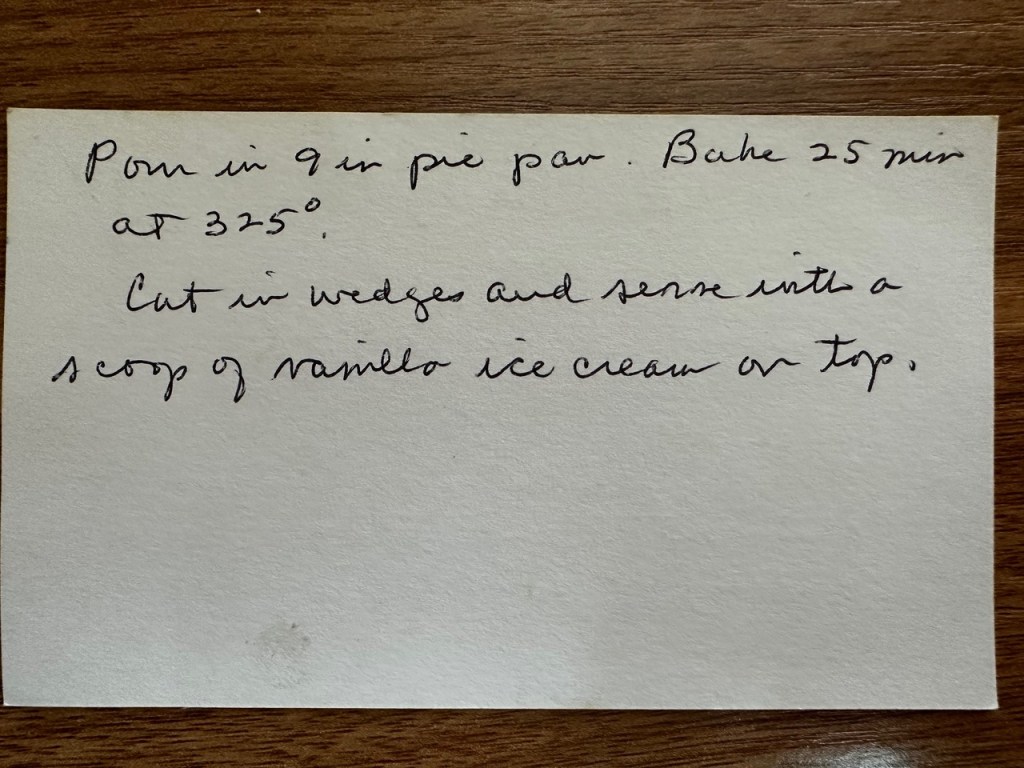 Pour in 9 in pie pan. Bake 25 min
at 325°.
Cut in wedges and serve with a
scoop of vanilla ice cream on top.